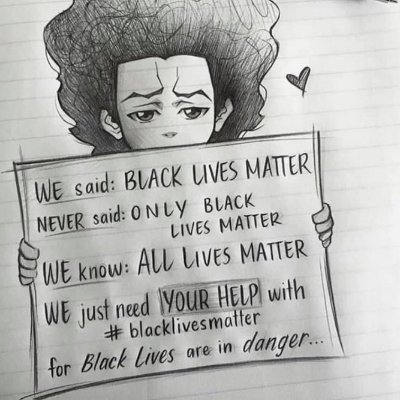 WE said: BLACK LIVES MATTER
NEVER said: ONLY BLACK
LIVES MATTER
WE know: ALL LIVES MATTER
WE just need YOUR HELP with
#blacklivesmatter
for Black Lives are in danger...